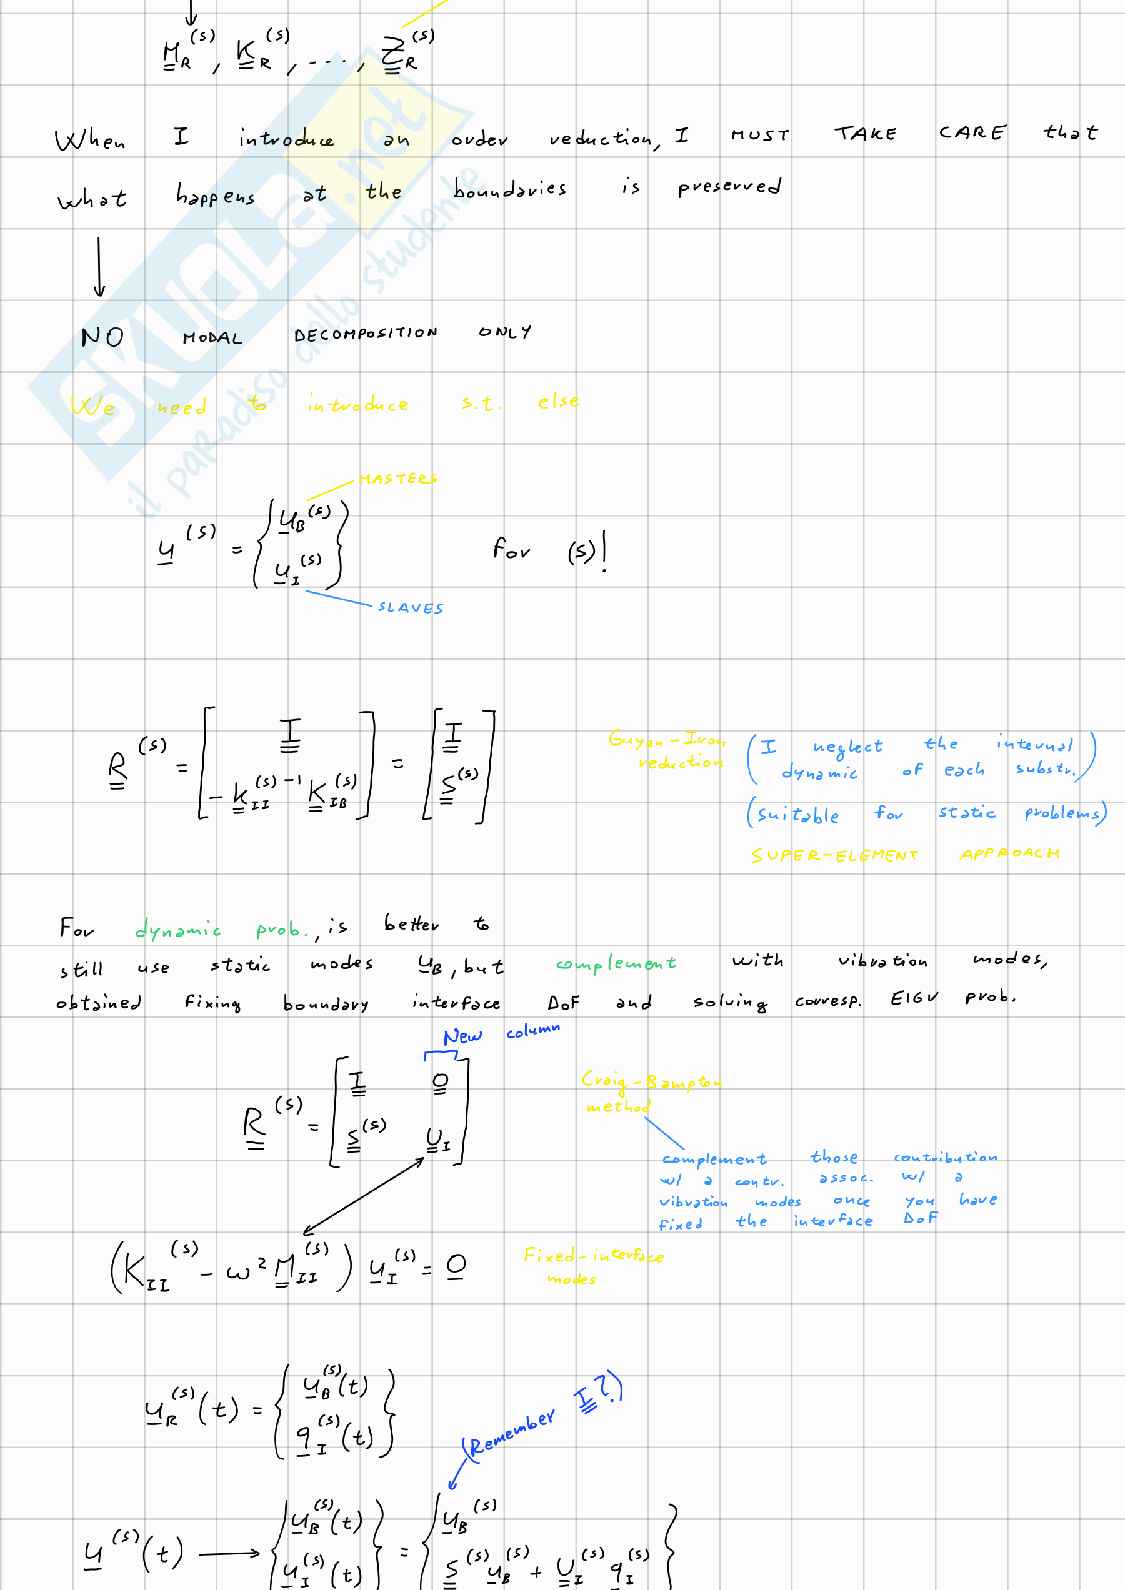 M_R^(s), K_R^(s), ..., Z_R^(s)
When I introduce an order reduction, I MUST TAKE CARE that
what happens at the boundaries is preserved
NO MODAL DECOMPOSITION ONLY
We need to introduce s.t. else
MASTERS
u^(s) = { u_B^(s) ; u_I^(s) } for (s)!
SLAVES
R^(s) = [ I ; -K_II^(s)^-1 K_IB^(s) ] = [ I ; S^(s) ]
Guyan-Iron
reduction
(I neglect the internal
dynamic of each substr.)
(suitable for static problems)
SUPER-ELEMENT APPROACH
For dynamic prob., is better to
still use static modes u_B, but complement with vibration modes,
obtained fixing boundary interface DoF and solving corresp. EIGV prob.
New column
R^(s) = [ I 0 ; S^(s) U_I ]
Craig-Bampton
method
complement those contribution
w/ a contr. assoc. w/ a
vibration modes once you have
fixed the interface DoF
(K_II^(s) - ω² M_II^(s)) u_I^(s) = 0
Fixed-interface
modes
u_R^(s)(t) = { u_B^(s)(t) ; q_I^(s)(t) }
(Remember I?)
u^(s)(t) → { u_B^(s)(t) ; u_I^(s)(t) } = { u_B^(s) ; S^(s) u_B^(s) + U_I^(s) q_I^(s) }
SKUOLA.net
il paradiso dello studente